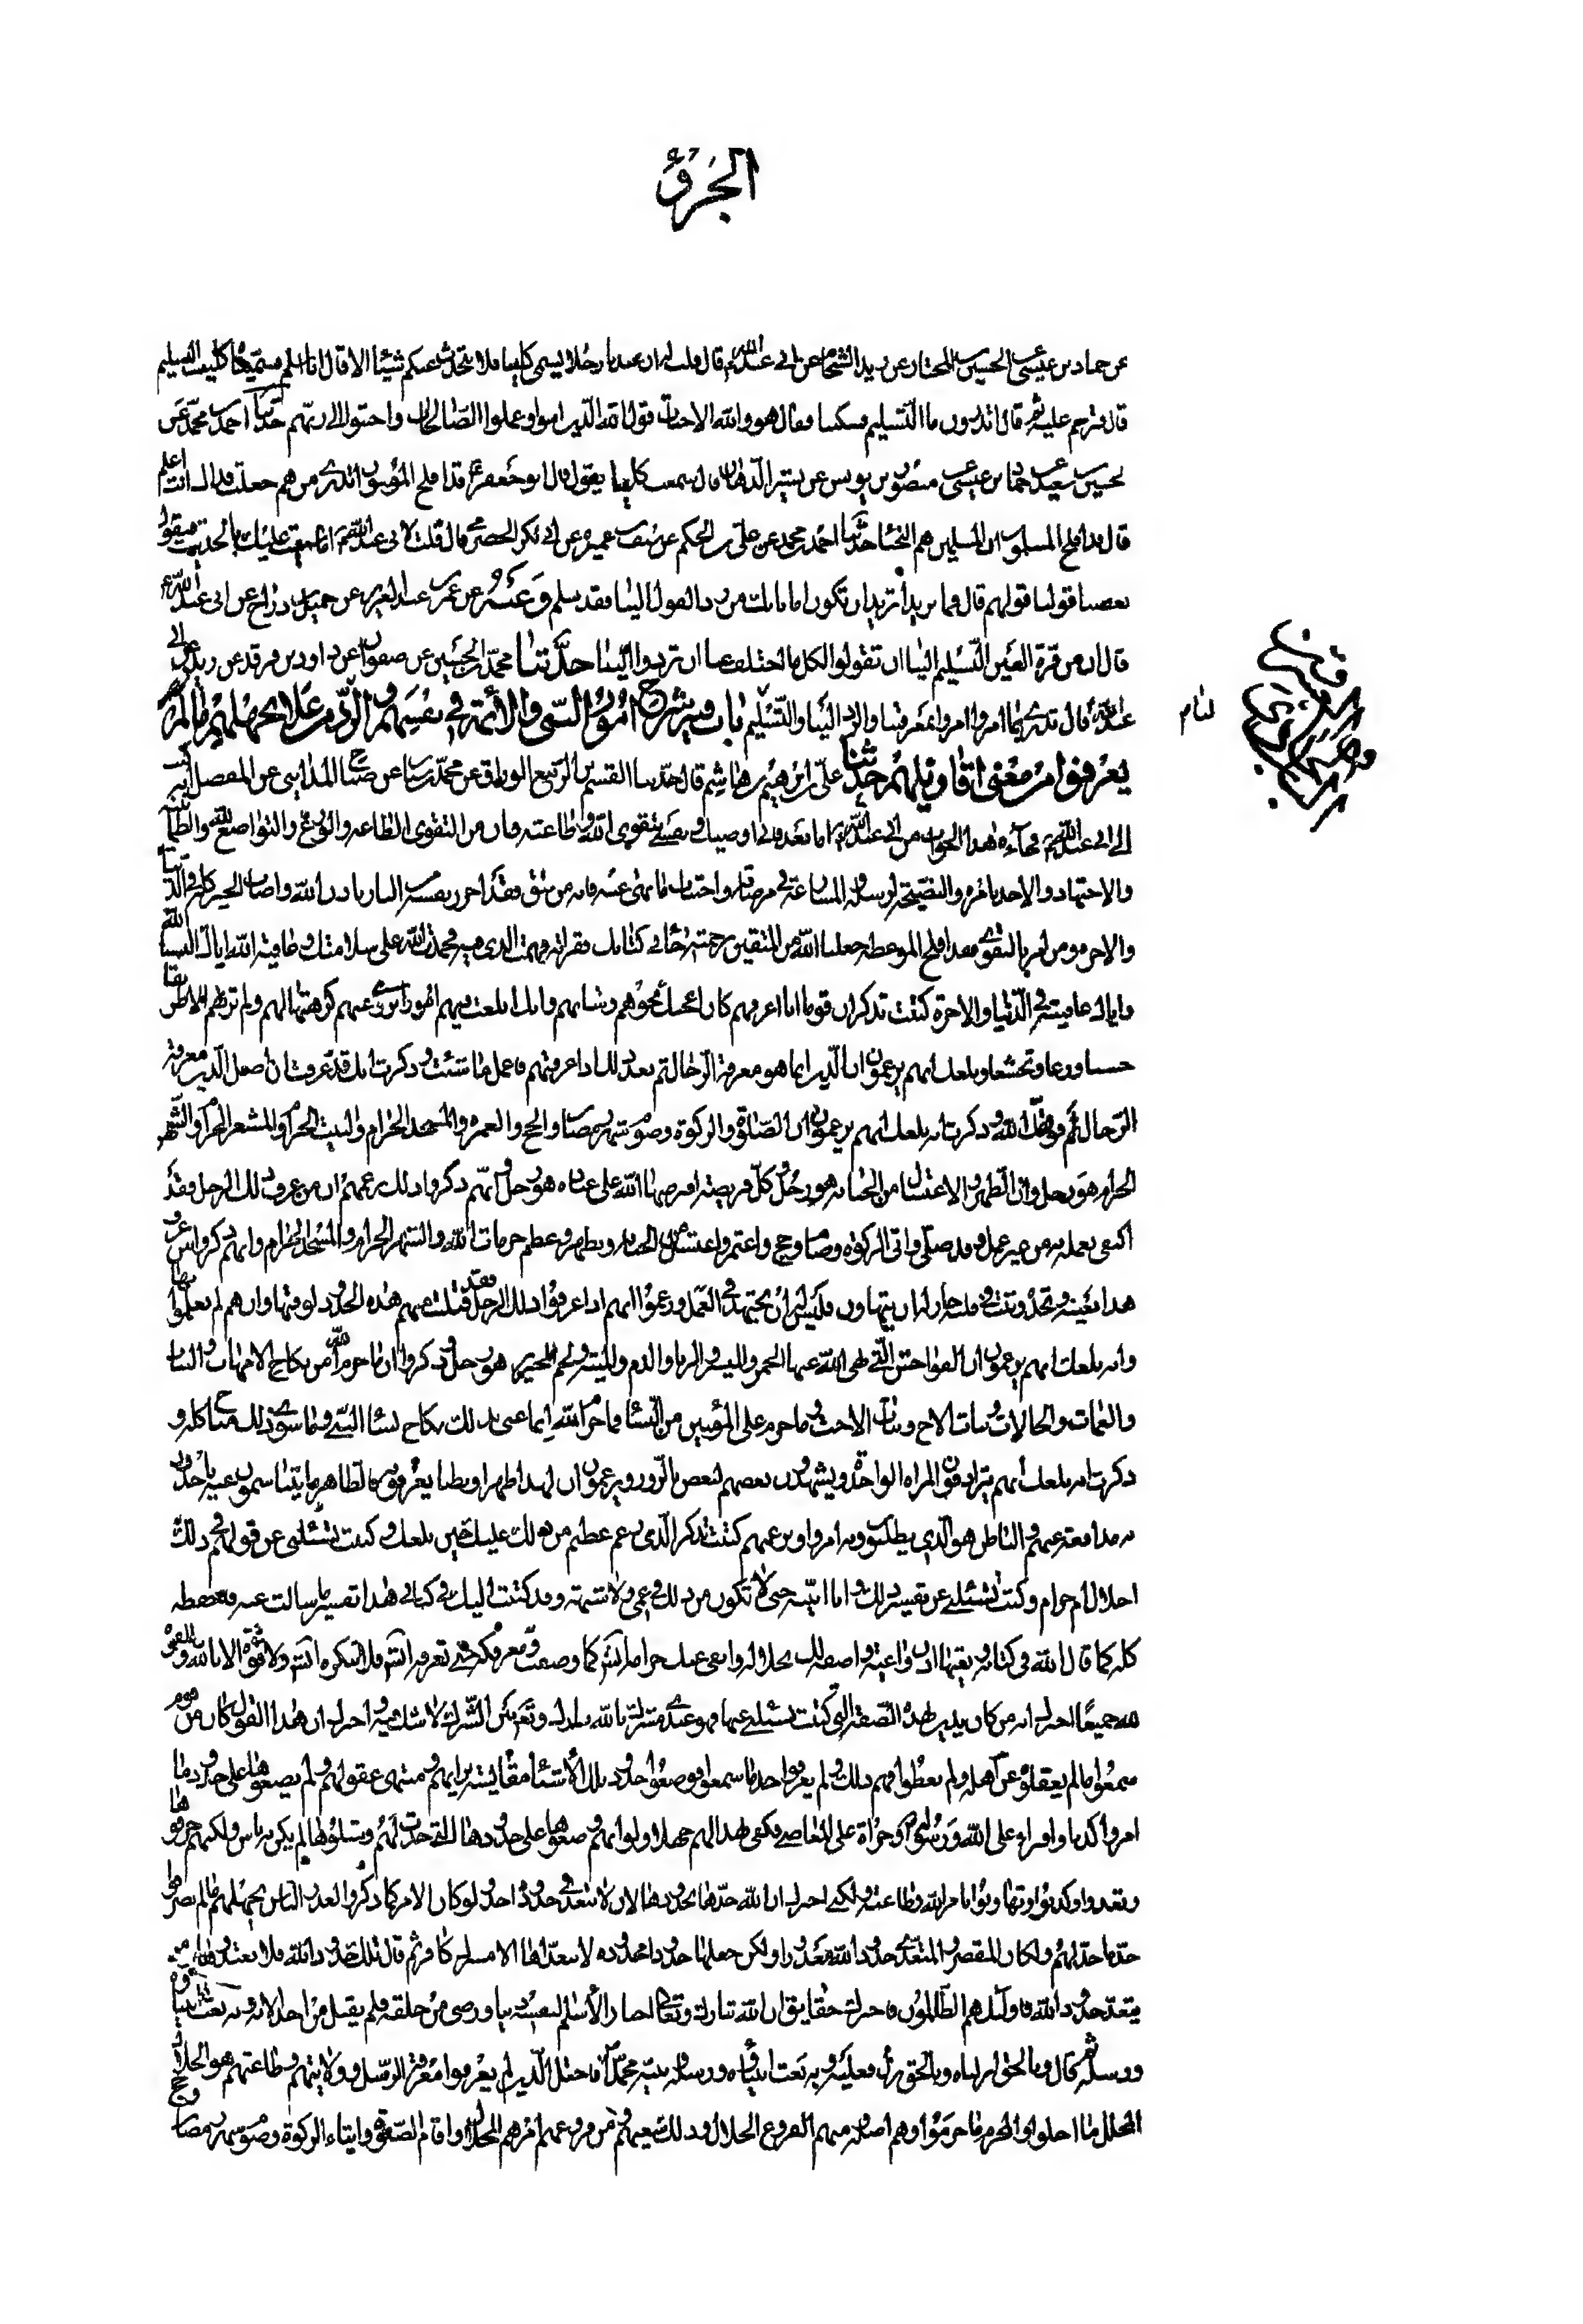 الجزؤ
عن حماد بن عيسى الحسين المختار عن زيد الشحام عن ابي عبد الله قال قلت له ان عندنا رجلا يسمى كليبا فلا نتحدث عنكم شيئا الا قال انا اسلم فسميناه كليب التسليم
قال فترحم عليه ثم قال اتدرون ما التسليم فسكتنا فقال هو والله الاخبات قول الله الذين امنوا وعملوا الصالحات واخبتوا الى ربهم حدثنا احمد بن محمد عن
حسين بن سعيد حماد بن عيسى منصور بن يونس عن بشير الدهان قال سمعت كليبا يقول قال ابو جعفر قد افلح المؤمنون اتدري من هم جعلت فداك انت اعلم
قال قد افلح المسلمون ان المسلمين هم النجباء حدثنا احمد بن محمد عن علي بن الحكم عن سيف بن عميرة عن ابي بكر الحضرمي قال قلت لابي عبد الله انا سمعت عليك بالحديث فيقول
بعضنا قولنا قولهم قال فما تريد أتريد ان تكون اماما من رد القول الينا فقد سلم وعنه عن عمر بن عبد العزيز عن جميل بن دراج عن ابي عبد الله
قال ان من قرة العين التسليم الينا ان تقولوا لكل ما اختلف عنا ان تردوا الينا حدثنا محمد بن الحسين عن صفوان عن داود بن فرقد عن زيد عن ابي
عبد الله قال تدري بما امروا امروا بمعرفتنا والرد الينا والتسليم لنا باب فيه شرح امور النبي والأئمة في نفسهم والرد من غلا بجهلهم ما لم
يعرفوا من معنى اقاويلهم حدثنا علي بن ابرهيم بن هاشم قال حدثنا القسم بن الربيع الوراق عن محمد بن سنان عن صباح المدايني عن المفضل انه كتب
الى ابي عبد الله فجاءه هذا الجواب من ابي عبد الله اما بعد فاني اوصيك ونفسي بتقوى الله وطاعته فان من التقوى الطاعة والورع والتواضع لله والطمأنينة
والاجتهاد والاخذ بامره والنصيحة لرسله والمسارعة في مرضاته واجتناب ما نهى عنه فانه من يتق فقد احرز نفسه من النار باذن الله واصاب الخير كله في الدنيا
والاخرة ومن امر بالتقوى فقد افلح الموعظة جعلنا الله من المتقين برحمته جاءني كتابك فقرأته وفهمت الذي فيه فحمدت الله على سلامتك وعافية الله اياك البسنا الله
واياك عافيته في الدنيا والاخرة كتبت تذكر ان قوما انا اعرفهم كان اعجبك نحوهم وشانهم وانك ابلغت فيهم امورا تروى عنهم كرهتها لهم ولم تر بهم الا طريقا
حسنا وورعا وتخشعا وبلغك انهم يزعمون ان الدين انما هو معرفة الرجال ثم بعد ذلك اذا عرفتهم فاعمل ما شئت وذكرت انك قد عرفت ان اصل الدين معرفة
الرجال فوفقك الله وذكرت انه بلغك انهم يزعمون ان الصلوة والزكوة وصوم شهر رمضان والحج والعمرة والمسجد الحرام والبيت الحرام والمشعر الحرام والشهر
الحرام هو رجل وان الطهر والاغتسال من الجنابة هو رجل وكل فريضة افترضها الله على عباده هو رجل وانهم ذكروا ذلك بزعمهم ان من عرف ذلك الرجل فقد
اكتفى بعلمه به من غير عمل وقد صلى واتى الزكوة وصام وحج واعتمر واغتسل من الجنابة وتطهر وعظم حرمات الله والشهر الحرام والمسجد الحرام وانهم ذكروا من عرف
هذا بعينه وبحده وثبت في قلبه جاز له ان يتهاون فليس له ان يجتهد في العمل وزعموا انهم اذا عرفوا ذلك الرجل فقد قبلت منهم هذه الحدود لوقتها وان هم لم يعملوا بها
وانه بلغك انهم يزعمون ان الفواحش التي نهى الله عنها الخمر والميسر والربا والدم والميتة ولحم الخنزير هو رجل وذكروا ان ما حرم الله من نكاح الامهات والبنات
والعمات والخالات وبنات الاخ وبنات الاخت وما حرم على المؤمنين من النساء فما حرم الله انما عنى بذلك نكاح نساء النبي وما سوى ذلك مباح كله و
ذكرت انه بلغك انهم يترادفون المراة الواحدة ويشهدون بعضهم لبعض بالزور ويزعمون ان لهذا ظهرا وبطنا يعرفونه فالظاهر ما يتناهون عنه يأخذون
به مدافعة عنهم والباطن هو الذي يطلبون وبه امروا بزعمهم كتبت تذكر الذي عظم من ذلك عليك حين بلغك وكتبت تسئلني عن قولهم في ذلك
احلال ام حرام وكتبت تسئلني عن تفسير ذلك وانا ابينه حتى لا تكون من ذلك في عمى ولا شبهة وقد كتبت اليك في كتابي هذا تفسير ما سالت عنه فاحفظه
كله كما قال الله في كتابه وتعيها اذن واعية واصفه لك بحلاله وانفي عنك حرامه انشاء كما وصفت ومعرفكه حتى تعرفه انشاء فلا تنكره انشاء ولا قوة الا بالله والقوة
لله جميعا اخبرك انه من كان يدين بهذه الصفة التي كتبت تسئلني عنها فهو عندي مشرك بالله تبارك وتعالى بين الشرك لا شك فيه واخبرك ان هذا القول كان من قوم
سمعوا ما لم يعقلوه عن اهله ولم يعطوا فهم ذلك ولم يعرفوا حد ما سمعوا فوضعوا حدود تلك الأشياء مقايسة برايهم ومنتهى عقولهم ولم يضعوها على حدود ما
امروا كذبا وافتراء على الله ورسوله وجراة على المعاصي فكفى بهذا لهم جهلا ولو انهم وضعوها على حدودها التي حدت لهم وقبلوها لم يكن به باس ولكنهم حرفوها
وتعدوا وكذبوا وتهاونوا بامر الله وطاعته ولكني اخبرك ان الله حدها بحدودها لان لا يتعدى حدوده احد ولو كان الامر كما ذكروا لعذر الناس بجهلهم ما لم يعرفوا
حد ما حد لهم ولكان المقصر والمتعدي حدود الله معذورا ولكن جعلها حدودا محدودة لا يتعداها الا مشرك كافر ثم قال تلك حدود الله فلا تعتدوها ومن
يتعد حدود الله فاولئك هم الظالمون فاخبرك حقايق ان الله تبارك وتعالى اختار الأسلم لنفسه دينا ورضى من خلقه فلم يقبل من احد الا به وبه بعث انبياءه
ورسله ثم قال وبالحق انزلناه وبالحق نزل فعليه وبه بعث انبياءه ورسله ونبيه محمدا فاختل الذين لم يعرفوا معرفة الرسل وولايتهم وطاعتهم هو الحلال
المحلل ما احلوا والمحرم ما حرموا وهم اصله ومنهم الفروع الحلال وذلك سعيهم ومن فروعهم امرهم الحلال واقام الصلوة وايتاء الزكوة وصوم شهر رمضان وحج